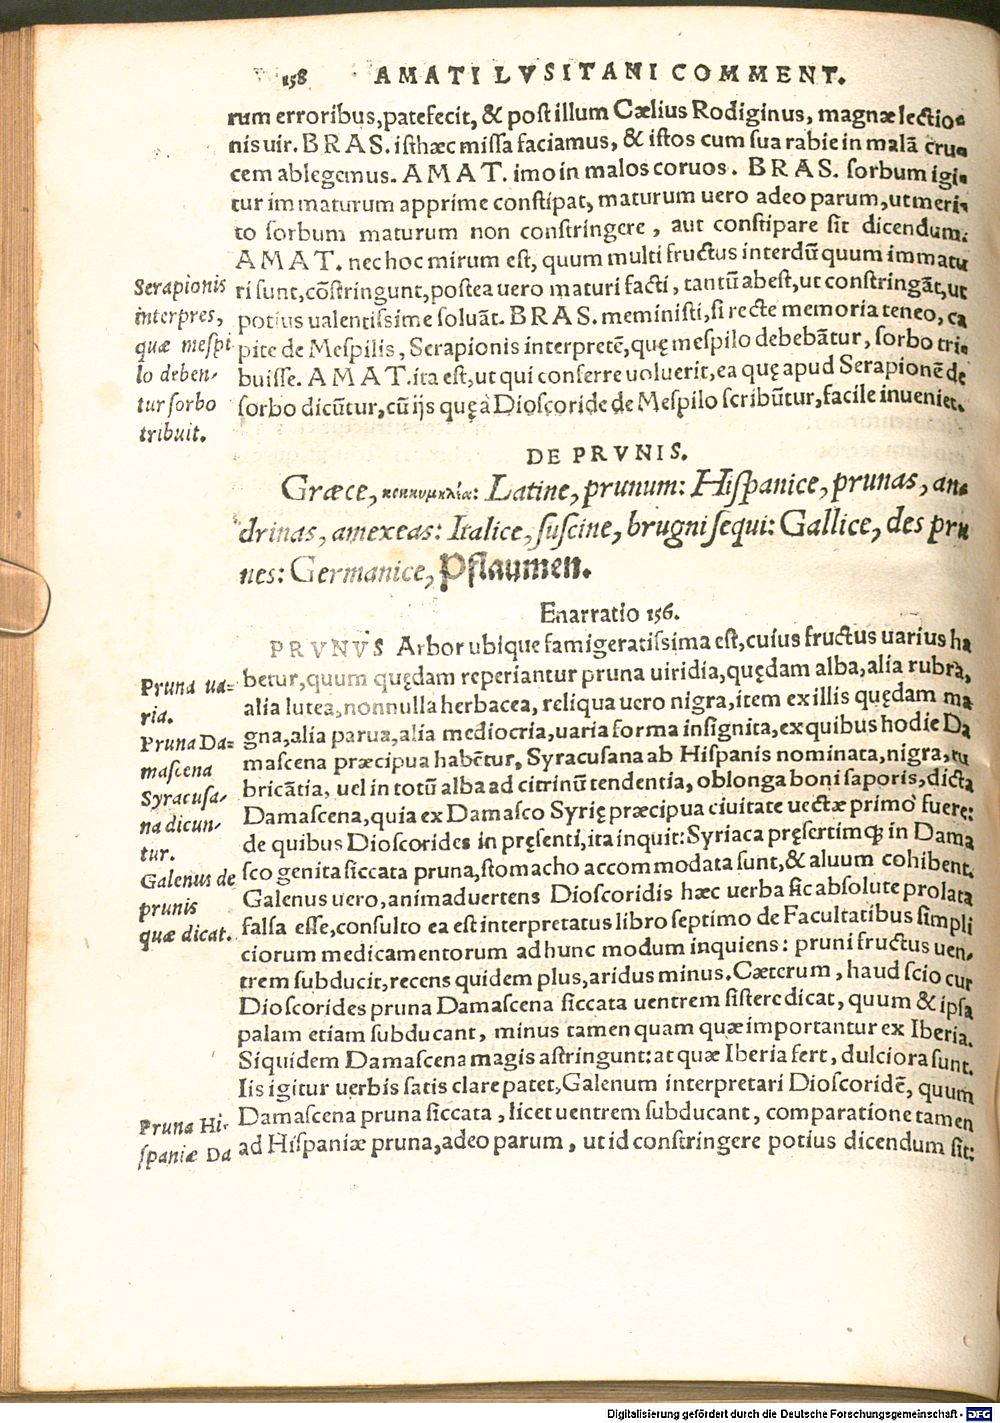 158 AMATI LVSITANI COMMENT.
rum erroribus, patefecit, & post illum Cælius Rodiginus, magnæ lectio-
nis uir. BRAS. isthæc missa faciamus, & istos cum sua rabie in malã cru-
cem ablegemus. AMAT. imo in malos coruos. BRAS. sorbum igi-
tur immaturum apprime constipat, maturum uero adeo parum, ut meri-
to sorbum maturum non constringere, aut constipare sit dicendum.
AMAT. nec hoc mirum est, quum multi fructus interdũ quum immatu
ri sunt, cõstringunt, postea uero maturi facti, tantũ abest, ut constringãt, ut
potius ualentissime soluãt. BRAS. meministi, si recte memoria teneo, ca
pite de Mespilis, Serapionis interpretẽ, quę mespilo debebãtur, sorbo tri-
buisse. AMAT. ita est, ut qui conferre uoluerit, ea quę apud Serapionẽ de
sorbo dicũtur, cũ ijs quę à Dioscoride de Mespilo scribũtur, facile inueniet.
Serapionis
interpres,
quæ mespi
lo deben-
tur sorbo
tribuit.
DE PRVNIS.
Græce, κοκκυμηλία: Latine, prunum: Hispanice, prunas, an-
drinas, amexeas: Italice, suscine, brugni sequi: Gallice, des pru
nes: Germanice, Pflaumen.
Enarratio 156.
PRVNVS Arbor ubique famigeratissima est, cuius fructus uarius ha
betur, quum quędam reperiantur pruna uiridia, quędam alba, alia rubra,
alia lutea, nonnulla herbacea, reliqua uero nigra, item ex illis quędam ma
gna, alia parua, alia mediocria, uaria forma insignita, ex quibus hodie Da
mascena præcipua habẽtur, Syracusana ab Hispanis nominata, nigra, ru
bricãtia, uel in totũ alba ad citrinũ tendentia, oblonga boni saporis, dicta
Damascena, quia ex Damasco Syrię præcipua ciuitate uectæ primò fuere:
de quibus Dioscorides in pręsenti, ita inquit: Syriaca pręsertimq; in Dama
sco genita siccata pruna, stomacho accommodata sunt, & aluum cohibent.
Galenus uero, animaduertens Dioscoridis hæc uerba sic absolute prolata
falsa esse, consulto ea est interpretatus libro septimo de Facultatibus simpli
ciorum medicamentorum ad hunc modum inquiens: pruni fructus uen-
trem subducit, recens quidem plus, aridus minus. Cæterum, haud scio cur
Dioscorides pruna Damascena siccata uentrem sistere dicat, quum & ipsa
palam etiam subducant, minus tamen quam quæ importantur ex Iberia.
Siquidem Damascena magis astringunt: at quæ Iberia fert, dulciora sunt.
Iis igitur uerbis satis clare patet, Galenum interpretari Dioscoridẽ, quum
Damascena pruna siccata, licet uentrem subducant, comparatione tamen
ad Hispaniæ pruna, adeo parum, ut id constringere potius dicendum sit:
Pruna ua-
ria.
Pruna Da-
mascena
Syracusa-
na dicun-
tur.
Galenus de
prunis
quæ dicat.
Pruna Hi-
spaniæ Da
Digitalisierung gefördert durch die Deutsche Forschungsgemeinschaft - DFG